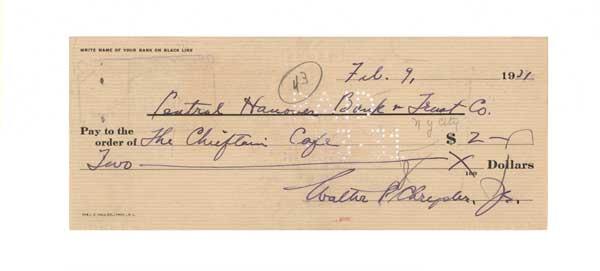 WRITE NAME OF YOUR BANK ON BLACK LINE
43
Feb. 9, 1931
Central Hanover Bank & Trust Co.
N Y City
Pay to the order of The Chieftain Cafe $ 2
Two X 100 Dollars
Walter P. Chrysler, Jr.